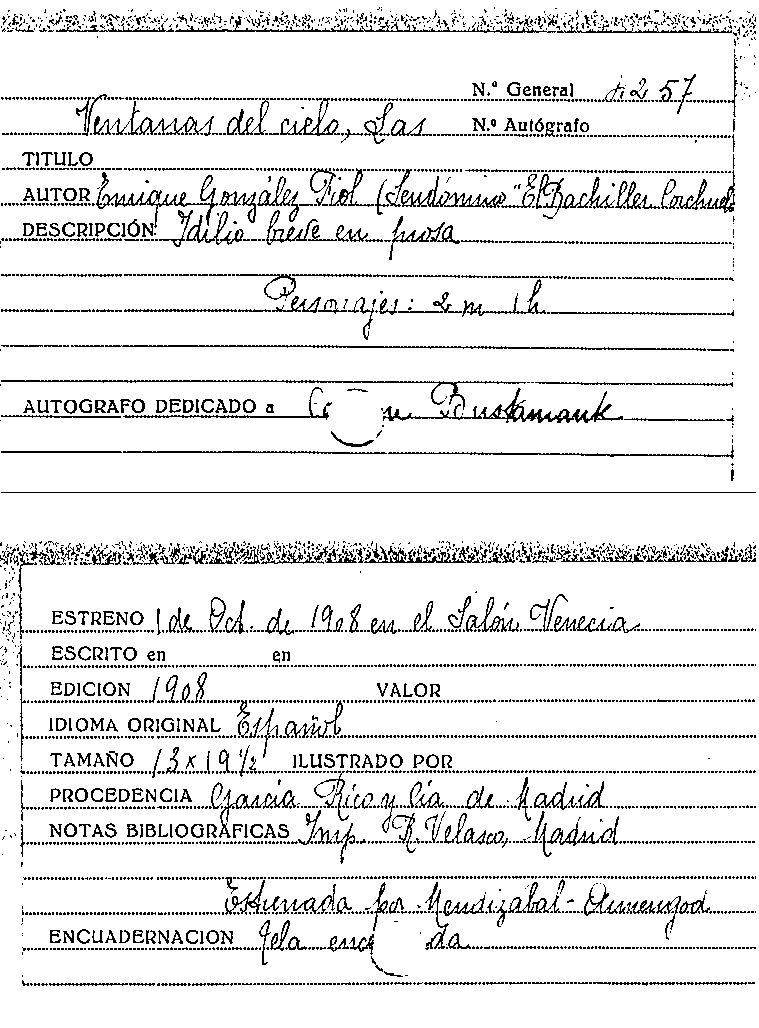 N.º General 4257
Ventanas del cielo, Las N.º Autógrafo
TITULO
AUTOR Enrique González Fiol (Seudónimo "El Bachiller Corchuel
DESCRIPCIÓN Idilio breve en prosa
Personajes: 2 m 1 h.
AUTOGRAFO DEDICADO a Bustamante
ESTRENO 1 de Oct. de 1908 en el Salón Venecia
ESCRITO en en
EDICION 1908 VALOR
IDIOMA ORIGINAL Español
TAMAÑO 13 x 19 1/2 ILUSTRADO POR
PROCEDENCIA García Rico y Cía de Madrid
NOTAS BIBLIOGRAFICAS Imp. R. Velasco, Madrid
Estrenada por Mendizabal - Armengod
ENCUADERNACION Tela